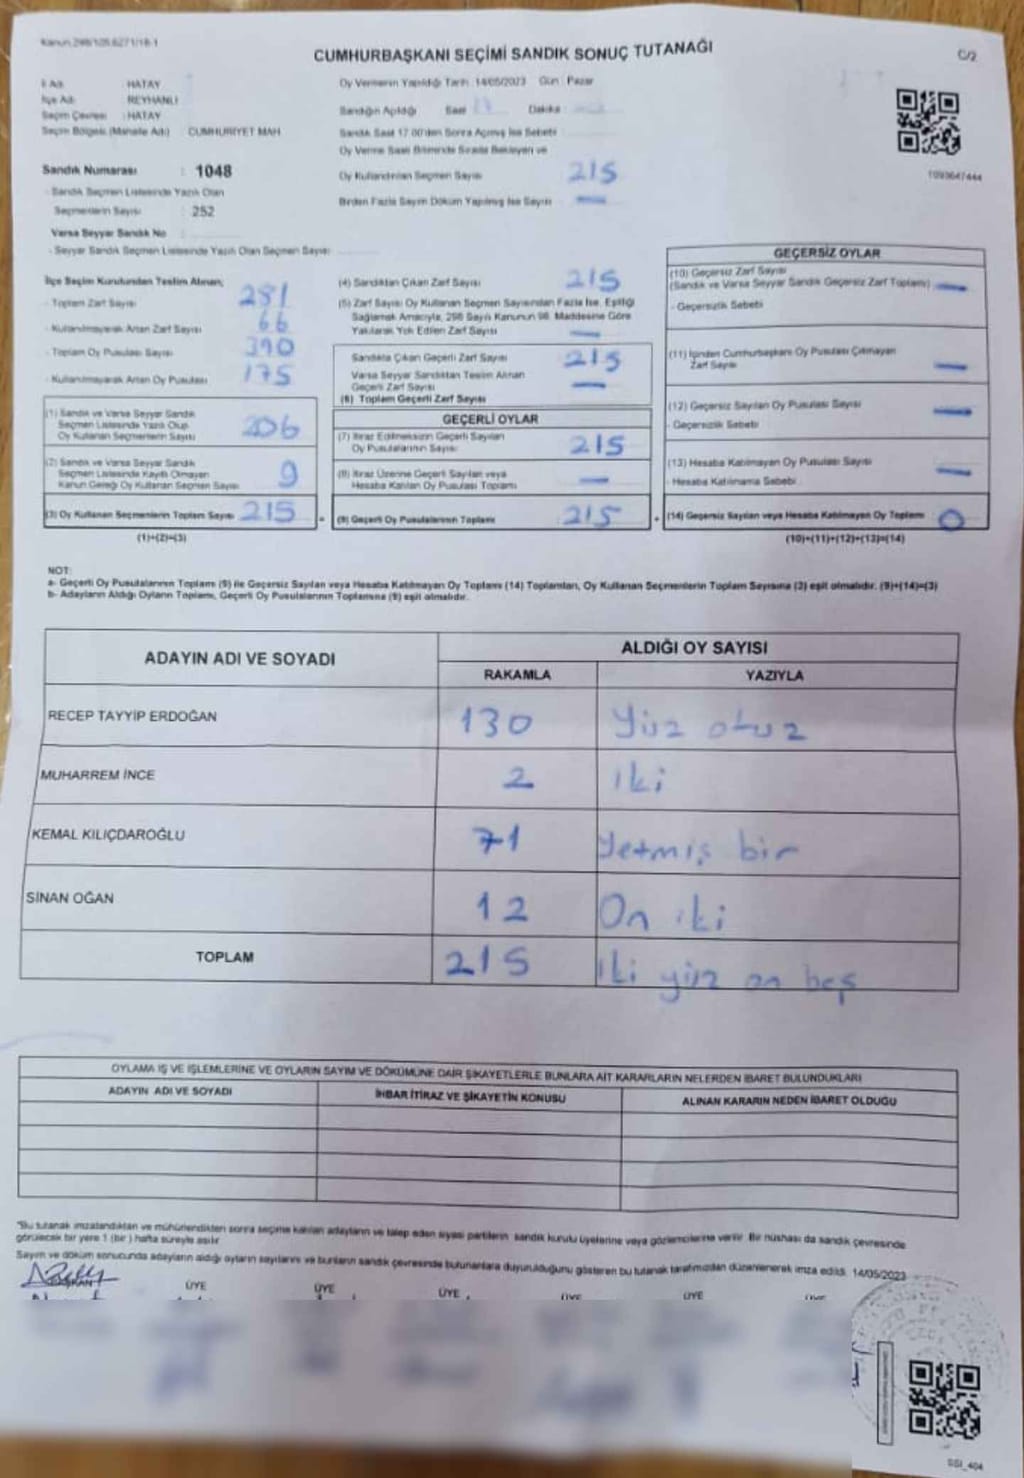 Kanun:298/105.6271/16-1
CUMHURBAŞKANI SEÇİMİ SANDIK SONUÇ TUTANAĞI
C/2
İl Adı : HATAY
İlçe Adı : REYHANLI
Seçim Çevresi : HATAY
Seçim Bölgesi (Mahalle Adı) : CUMHURİYET MAH
Oy Vermenin Yapıldığı Tarih : 14/05/2023 Gün : Pazar
Sandığın Açıldığı Saat Dakika
Sandık Saat 17.00'den Sonra Açılmış İse Sebebi
Oy Verme Saati Bitiminde Sırada Bekleyen ve
Oy Kullandırılan Seçmen Sayısı 215
Birden Fazla Sayım Döküm Yapılmış İse Sayısı —
1093647444
Sandık Numarası : 1048
- Sandık Seçmen Listesinde Yazılı Olan
Seçmenlerin Sayısı : 252
Varsa Seyyar Sandık No :
- Seyyar Sandık Seçmen Listesinde Yazılı Olan Seçmen Sayısı :
İlçe Seçim Kurulundan Teslim Alınan;
- Toplam Zarf Sayısı 281
- Kullanılmayarak Artan Zarf Sayısı 66
- Toplam Oy Pusulası Sayısı 390
- Kullanılmayarak Artan Oy Pusulası 175
(1) Sandık ve Varsa Seyyar Sandık
Seçmen Listesinde Yazılı Olup
Oy Kullanan Seçmenlerin Sayısı 206
(2) Sandık ve Varsa Seyyar Sandık
Seçmen Listesinde Kayıtlı Olmayan
Kanun Gereği Oy Kullanan Seçmen Sayısı 9
(3) Oy Kullanan Seçmenlerin Toplam Sayısı 215
(1)+(2)=(3)
(4) Sandıktan Çıkan Zarf Sayısı 215
(5) Zarf Sayısı Oy Kullanan Seçmen Sayısından Fazla İse, Eşitliği
Sağlamak Amacıyla, 298 Sayılı Kanunun 98. Maddesine Göre
Yakılarak Yok Edilen Zarf Sayısı —
Sandıkta Çıkan Geçerli Zarf Sayısı 215
Varsa Seyyar Sandıktan Teslim Alınan
Geçerli Zarf Sayısı —
(6) Toplam Geçerli Zarf Sayısı
GEÇERLİ OYLAR
(7) İtiraz Edilmeksizin Geçerli Sayılan
Oy Pusulalarının Sayısı 215
(8) İtiraz Üzerine Geçerli Sayılan veya
Hesaba Katılan Oy Pusulası Toplamı —
= (9) Geçerli Oy Pusulalarının Toplamı 215
GEÇERSİZ OYLAR
(10) Geçersiz Zarf Sayısı
(Sandık ve Varsa Seyyar Sandık Geçersiz Zarf Toplamı) —
- Geçersizlik Sebebi
(11) İçinden Cumhurbaşkanı Oy Pusulası Çıkmayan
Zarf Sayısı —
(12) Geçersiz Sayılan Oy Pusulası Sayısı —
- Geçersizlik Sebebi
(13) Hesaba Katılmayan Oy Pusulası Sayısı —
- Hesaba Katılmama Sebebi
+ (14) Geçersiz Sayılan veya Hesaba Katılmayan Oy Toplamı 0
(10)+(11)+(12)+(13)=(14)
NOT:
a- Geçerli Oy Pusulalarının Toplamı (9) ile Geçersiz Sayılan veya Hesaba Katılmayan Oy Toplamı (14) Toplamları, Oy Kullanan Seçmenlerin Toplam Sayısına (3) eşit olmalıdır. (9)+(14)=(3)
b- Adayların Aldığı Oyların Toplamı, Geçerli Oy Pusulalarının Toplamına (9) eşit olmalıdır.
ADAYIN ADI VE SOYADI
ALDIĞI OY SAYISI
RAKAMLA YAZIYLA
RECEP TAYYİP ERDOĞAN 130 Yüz otuz
MUHARREM İNCE 2 iki
KEMAL KILIÇDAROĞLU 71 Yetmiş bir
SİNAN OĞAN 12 On iki
TOPLAM 215 iki yüz on beş
OYLAMA İŞ VE İŞLEMLERİNE VE OYLARIN SAYIM VE DÖKÜMÜNE DAİR ŞİKAYETLERLE BUNLARA AİT KARARLARIN NELERDEN İBARET BULUNDUKLARI
ADAYIN ADI VE SOYADI İHBAR İTİRAZ VE ŞİKAYETİN KONUSU ALINAN KARARIN NEDEN İBARET OLDUĞU
*Bu tutanak imzalandıktan ve mühürlendikten sonra seçime katılan adayların ve talep eden siyasi partilerin sandık kurulu üyelerine veya gözlemcilerine verilir. Bir nüshası da sandık çevresinde
görülecek bir yere 1 (bir) hafta süreyle asılır
Sayım ve döküm sonucunda adayların aldığı oyların sayılarını ve bunların sandık çevresinde bulunanlara duyurulduğunu gösteren bu tutanak tarafımızdan düzenlenerek imza edildi. 14/05/2023
BAŞKAN ÜYE ÜYE ÜYE ÜYE ÜYE ÜYE
SSI_404